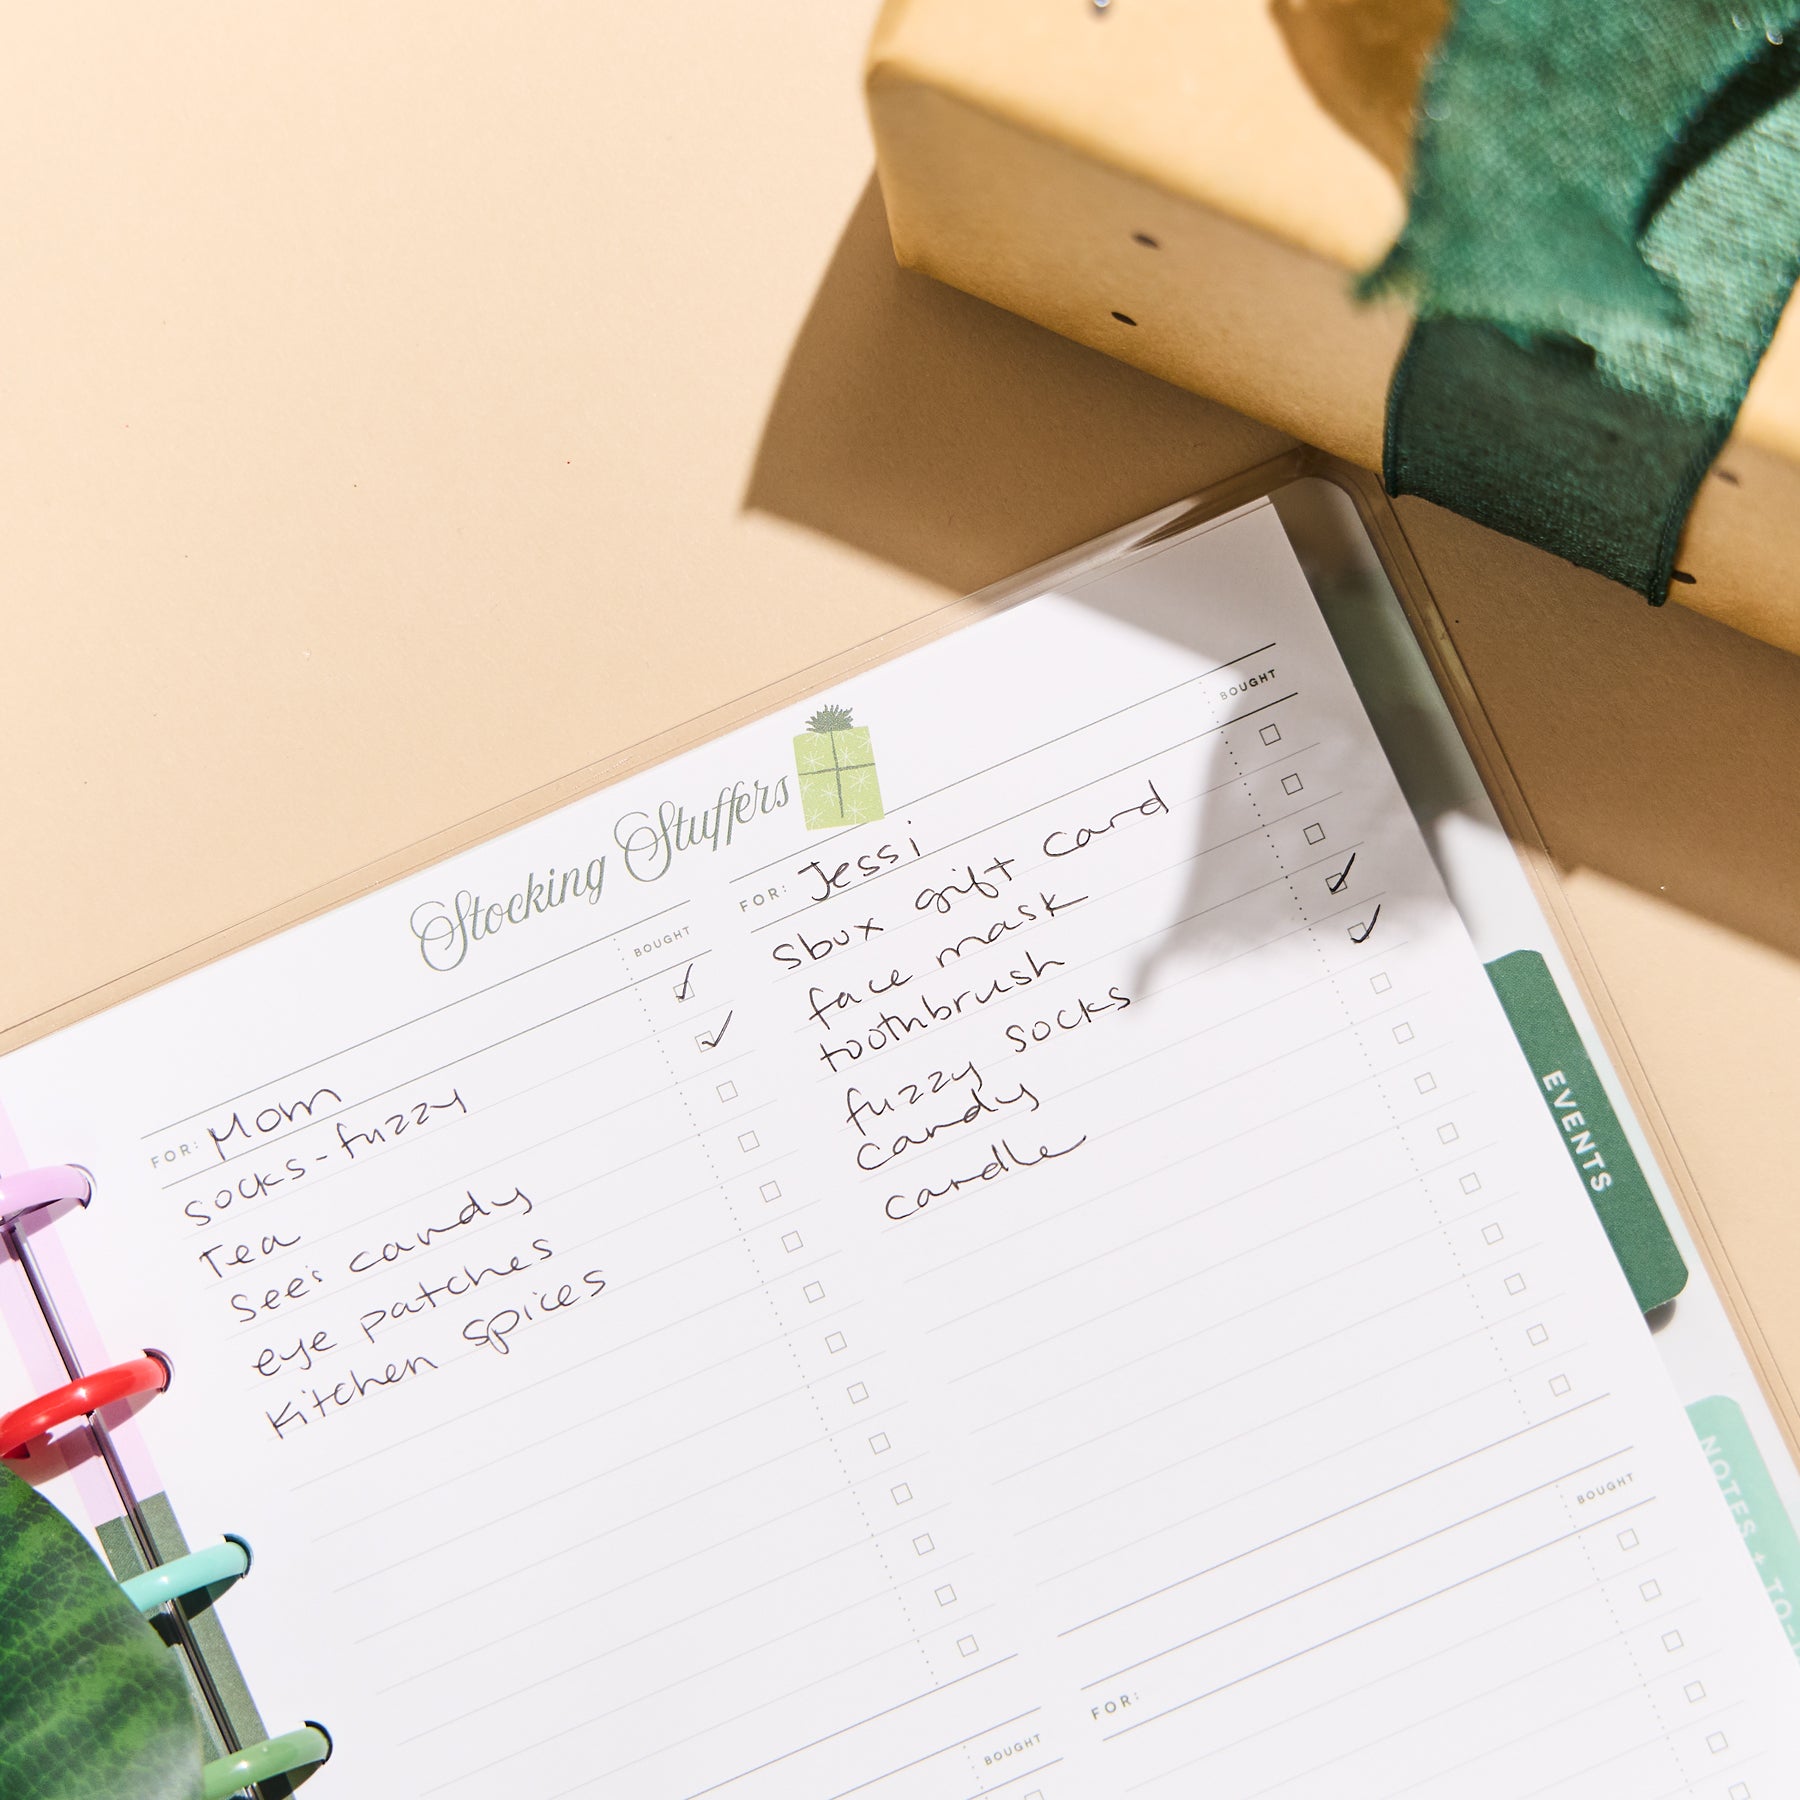 Stocking Stuffers
BOUGHT
FOR: Mom
socks-fuzzy
Tea
See's candy
eye patches
Kitchen spices
BOUGHT
FOR: Jessi
Sbux gift card
face mask
toothbrush
fuzzy socks
candy
candle
BOUGHT
BOUGHT
FOR:
EVENTS
NOTES + TO-